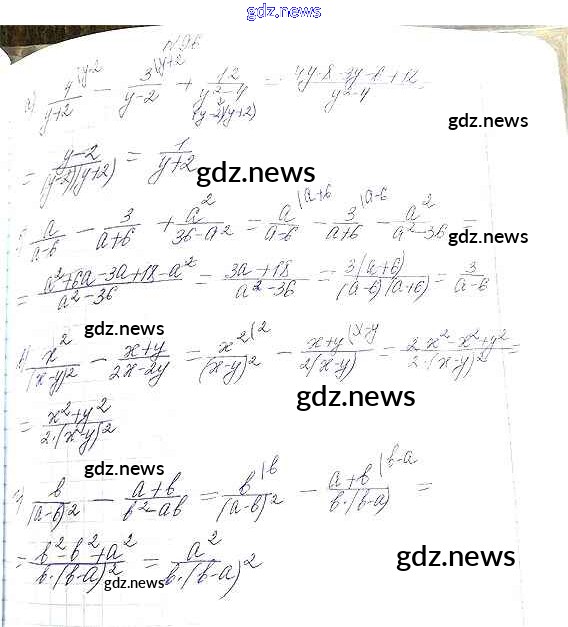 gdz.news
№96
а) y/(y+2) |y-2 - 3/(y-2) |y+2 + 12/(y²-4) (y-2)(y+2) = 4y-8-3y-6+12/(y²-4)
gdz.news
= (y-2)/((y-2)(y+2)) = 1/(y+2)
gdz.news
a/(a-6) - 3/(a+6) + a²/(36-a²) = a/(a-6) |a+6 - 3/(a+6) |a-6 - a²/(a²-36) =
gdz.news
= (a²+6a-3a+18-a²)/(a²-36) = (3a+18)/(a²-36) = 3(a+6)/((a-6)(a+6)) = 3/(a-6)
gdz.news
x²/(x-y)² - (x+y)/(2x-2y) = x²/(x-y)² |2 - (x+y)/(2(x-y)) |x-y = (2x²-x²+y²)/(2·(x-y)²) =
gdz.news
= (x²+y²)/(2·(x-y)²)
gdz.news
г) b/(a-b)² - (a+b)/(b²-ab) = b/(a-b)² |b - (a+b)/(b·(b-a)) |b-a =
= (b²-b²+a²)/(b·(b-a)²) = a²/(b·(b-a)²)
gdz.news
gdz.news